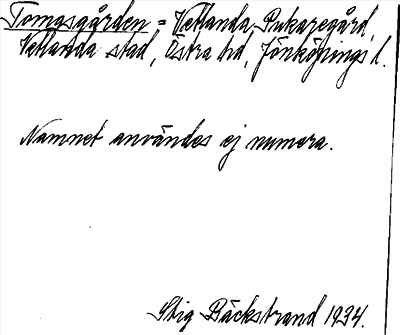 Tomgsgården = Vetlanda Pukaregård,
Vetlanda stad, Östra hd, Jönköpings l.
Namnet användes ej numera.
Stig Bäckstrand 1934.